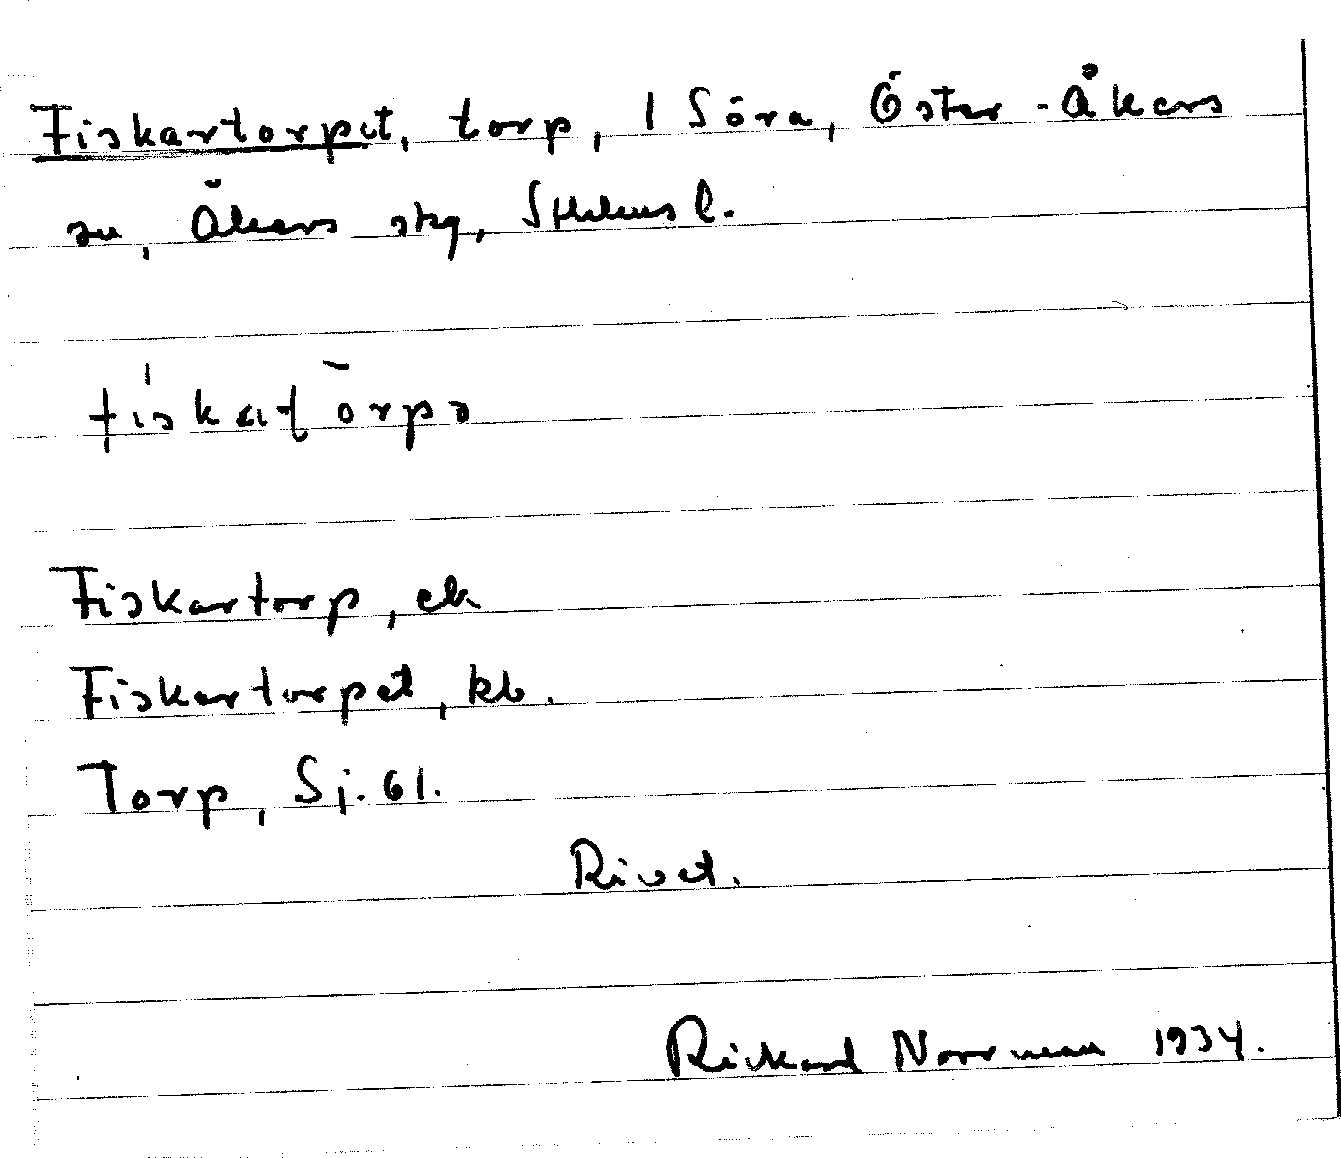 Fiskartorpet, torp, 1 Söra, Öster-Åkers
sn, Åkers skg, Sthlms l.
fiskatorpə
Fiskartorp, ek
Fiskartorpet, kb.
Torp, Sj. 61.
Rivet.
Rickard Norrman 1934.